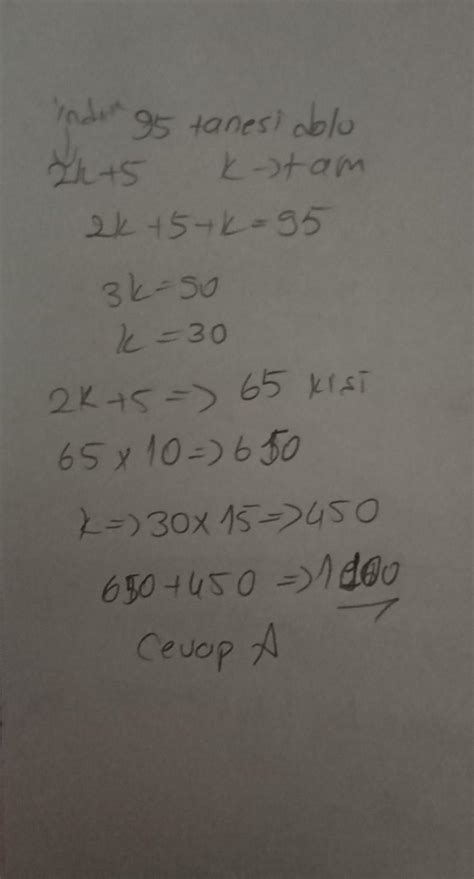 indir 95 tanesi dolu
2k+5 k→tam
2k+5+k=95
3k=90
k=30
2k+5=>65 kişi
65x10=>650
k=>30x15=>450
650+450=>1100
Cevap A